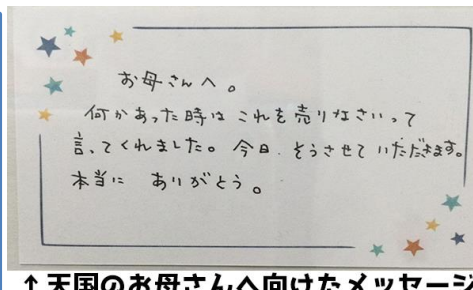 お母さんへ。
何かあった時は これを売りなさいって
言ってくれました。今日、そうさせていただきます。
本当に ありがとう。
↑天国のお母さんへ向けたメッセージ